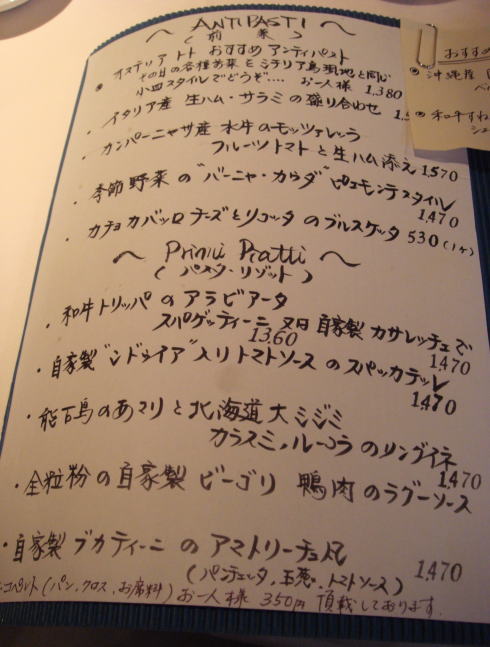 ~ ANTIPASTI ~
(前菜)
・オステリア トト おすすめ アンティパスト
その日の各種前菜をシチリア島現地と同じ
小皿スタイルでどうぞ…. お一人様 1,380
・イタリア産 生ハム・サラミの盛り合わせ
・カンパーニャ産 水牛のモッツァレッラ
フルーツトマトと生ハム添え 1,570
・季節野菜の"バーニャ・カウダ"ピエモンテスタイル
1,470
・カチョカバッロチーズとリコッタのブルスケッタ 530(1ヶ)
~ Primi Piatti ~
(パスタ・リゾット)
・和牛トリッパのアラビアータ
スパゲッティーニ 又は 自家製カサレッチェで
1360 1,470
・自家製"ンドゥイア"入りトマトソースのスパッカテッレ
1,470
・能古島のあさりと北海道大シジミ
カラスミ,ルーコラのリングイネ
1,470
・全粒粉の自家製ビーゴリ 鴨肉のラグーソース
・自家製ブカティーニのアマトリーチェ風
(パンチェッタ,玉葱,トマトソース) 1,470
コペルト(パン,クロス,お席料)お一人様 350円 頂戴しております.
おすすめ
◎沖縄産
◎和牛すね